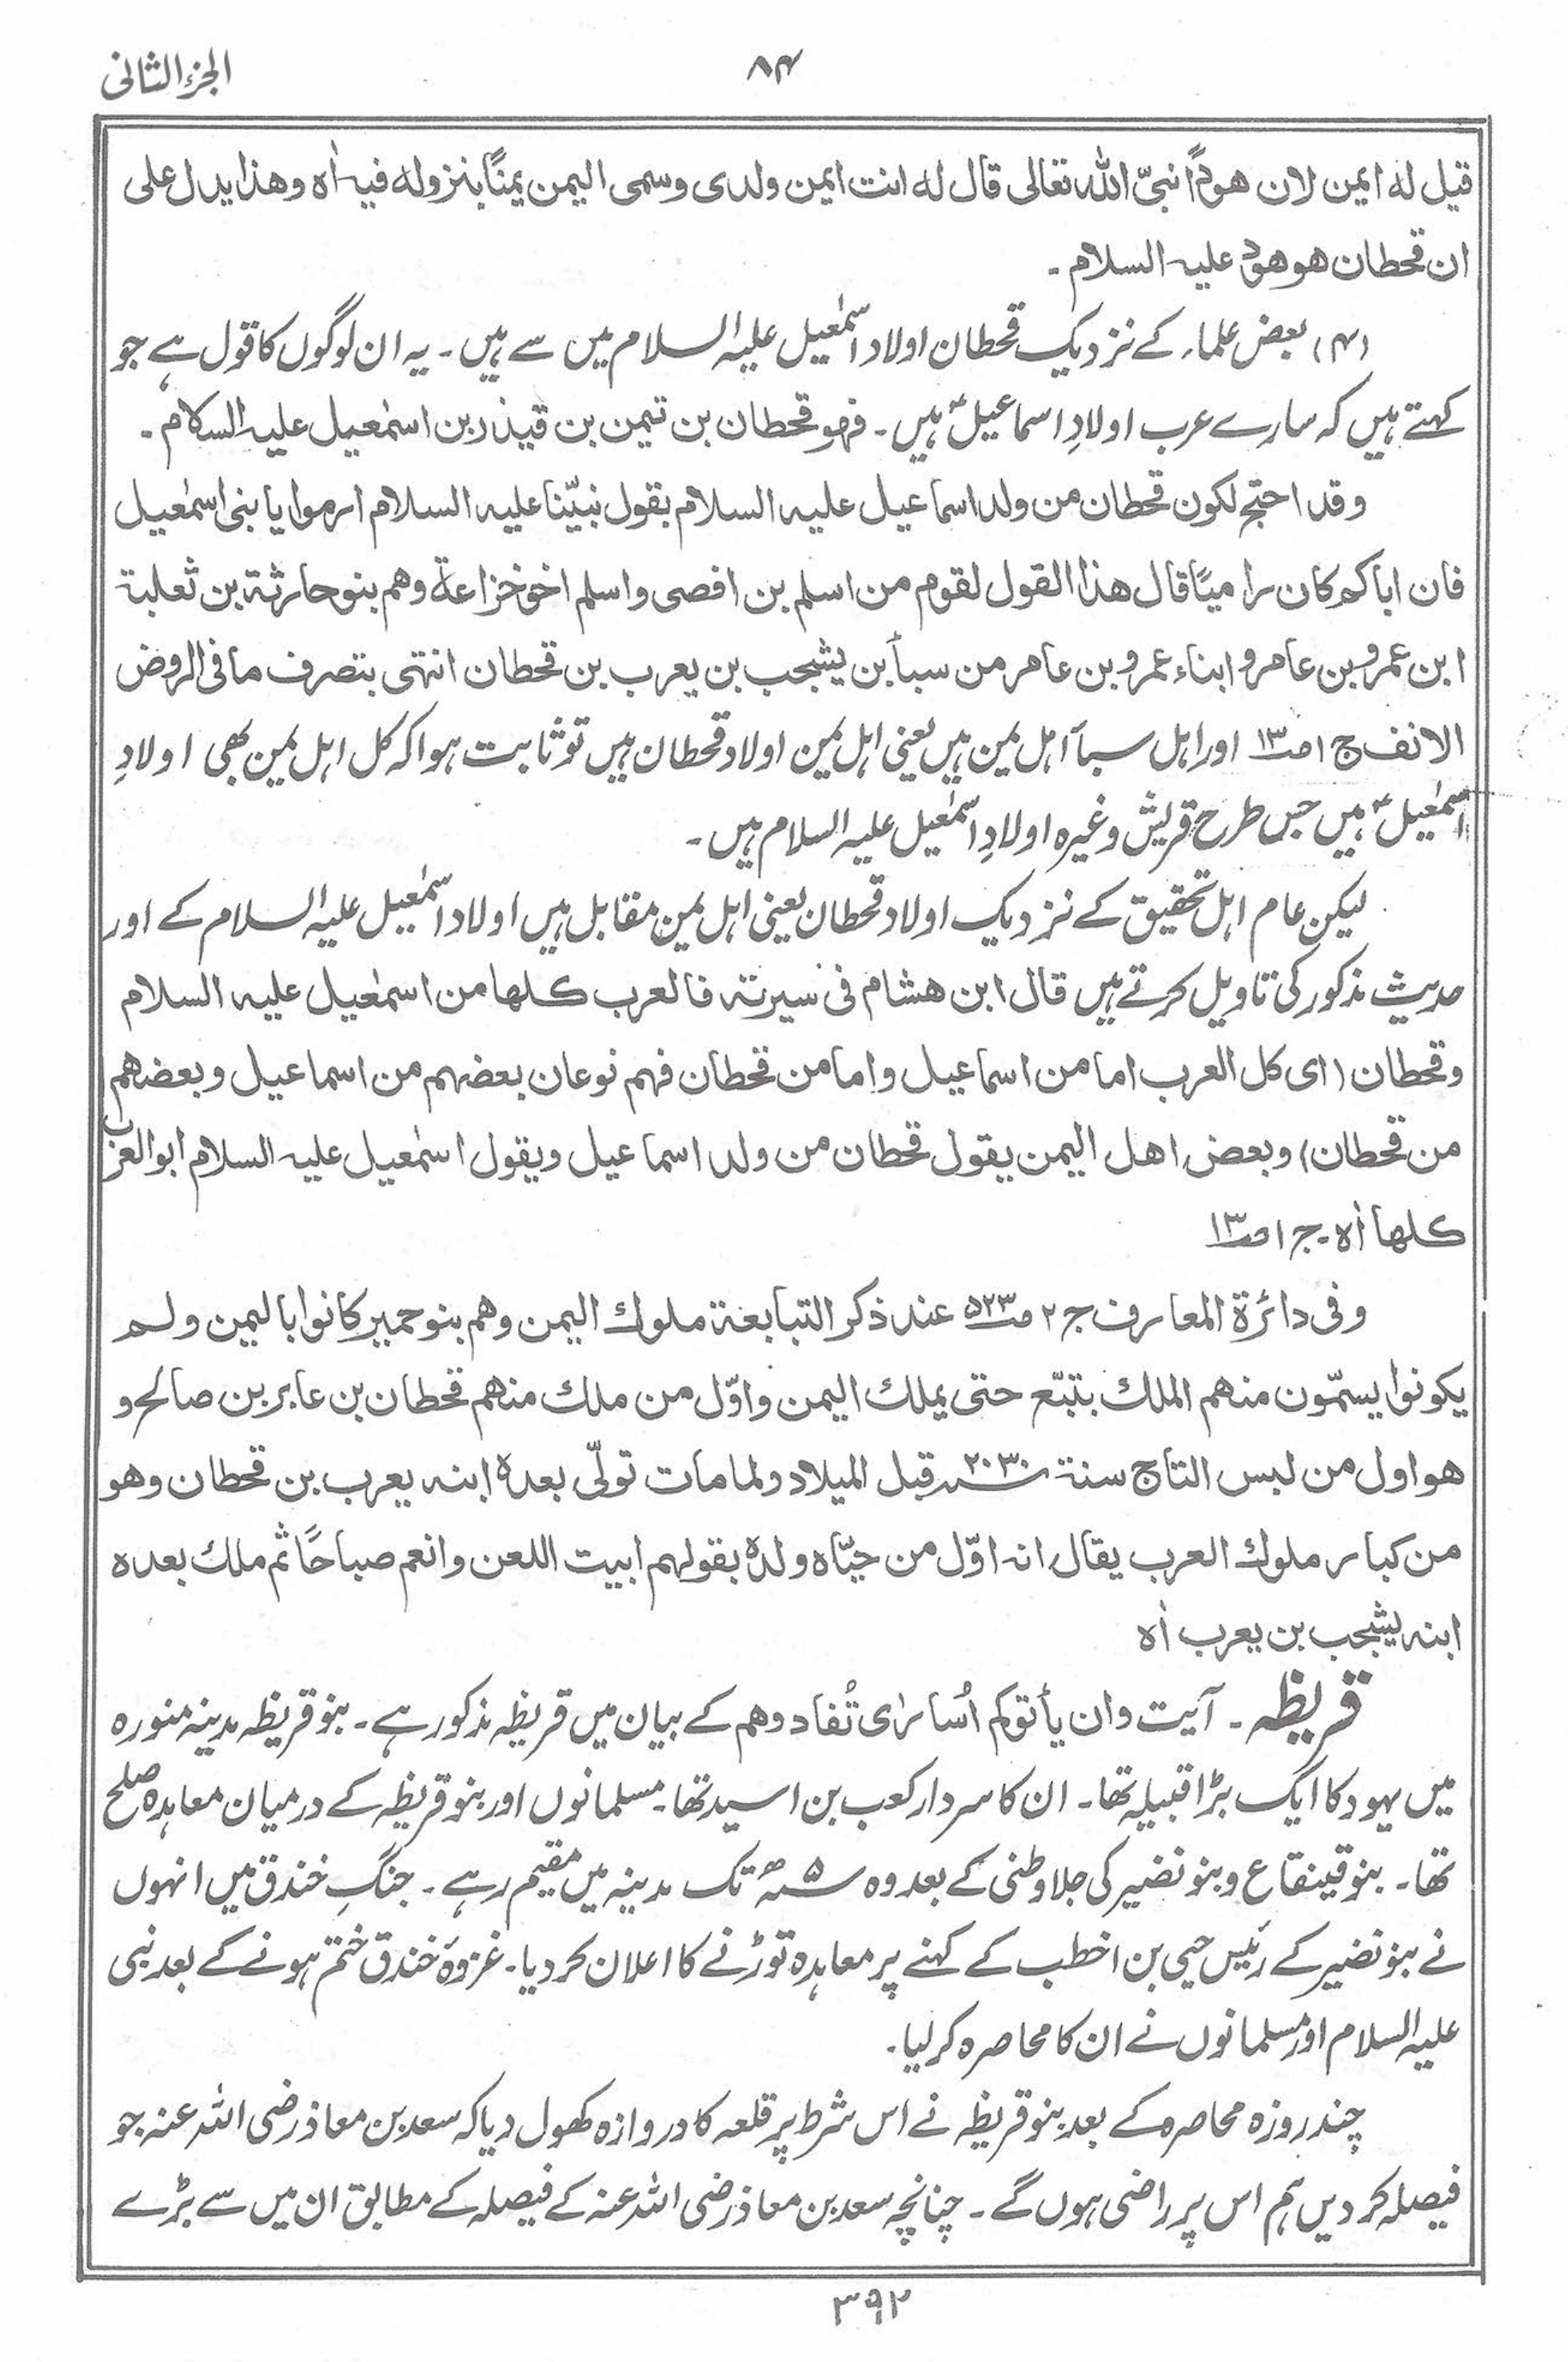 الجزء الثانی
۸۴
قیل له ایمن لان هودًا نبیّ الله تعالی قال له انت ایمن ولدی وسمی الیمن یمنًا بنزوله فیه اٰه وهذا یدل علی
ان قحطان هو هود علیه السلام ۔
(۴) بعض علماء کے نزدیک قحطان اولاد اسمٰعیل علیہ السلام میں سے ہیں ۔ یہ ان لوگوں کا قول ہے جو
کہتے ہیں کہ سارے عرب اولادِ اسماعیلؑ ہیں ۔ فهو قحطان بن تیمن بن قیذر بن اسمٰعیل علیه السلام ۔
وقد احتج لکون قحطان من ولد اسماعیل علیه السلام بقول نبیّنا علیه السلام ارموا یا بنی اسمٰعیل
فان اباکم کان رامیًا قال هذا القول لقوم من اسلم بن افصی واسلم اخو خزاعة وهم بنو حارثة بن ثعلبة
ابن عمرو بن عامر و ابناء عمرو بن عامر من سبأ بن یشجب بن یعرب بن قحطان انتهی بتصرف ما فی الروض
الانف ج ۱ ص۱۳ اور اہل سبا اہل یمن ہیں یعنی اہل یمن اولاد قحطان ہیں تو ثابت ہوا کہ کل اہل یمن بھی اولادِ
اسمٰعیلؑ ہیں جس طرح قریش وغیرہ اولادِ اسمٰعیل علیہ السلام ہیں ۔
لیکن عام اہل تحقیق کے نزدیک اولاد قحطان یعنی اہل یمن مقابل ہیں اولاد اسمٰعیل علیہ السلام کے اور
حدیث مذکور کی تاویل کرتے ہیں قال ابن هشام فی سیرته فالعرب کلها من اسمٰعیل علیه السلام
وقحطان (ای کل العرب اما من اسماعیل واما من قحطان فهم نوعان بعضهم من اسماعیل وبعضهم
من قحطان) وبعض اهل الیمن یقول قحطان من ولد اسماعیل ویقول اسمٰعیل علیه السلام ابو العرب
کلها اٰه ۔ ج ۱ ص۱۳
وفی دائرة المعارف ج ۲ ص۵۲۳ عند ذکر التبابعة ملوك الیمن وهم بنو حمیر کانوا بالیمن ولم
یکونوا یسمّون منهم الملك بتبّع حتی یملك الیمن واوّل من ملك منهم قحطان بن عابر بن صالح و
هو اول من لبس التاج سنة ۲۰۳۰؁ قبل المیلاد ولما مات تولّی بعده ابنه یعرب بن قحطان وهو
من کبار ملوك العرب یقال انه اوّل من حیّاه ولده بقولهم ابیت اللعن وانعم صباحًا ثم ملك بعده
ابنه یشجب بن یعرب اٰه
قریظہ ۔ آیت وان یأتوکم اُسارٰی تُفادوهم کے بیان میں قریظہ مذکور ہے ۔ بنو قریظہ مدینہ منورہ
میں یہود کا ایک بڑا قبیلہ تھا ۔ ان کا سردار کعب بن اسید تھا ۔ مسلمانوں اور بنو قریظہ کے درمیان معاہدہ صلح
تھا ۔ بنو قینقاع و بنو نضیر کی جلاوطنی کے بعد وہ ۵؁ھ تک مدینہ میں مقیم رہے ۔ جنگِ خندق میں انہوں
نے بنو نضیر کے رئیس حیی بن اخطب کے کہنے پر معاہدہ توڑنے کا اعلان کر دیا ۔ غزوۂ خندق ختم ہونے کے بعد نبی
علیہ السلام اور مسلمانوں نے ان کا محاصرہ کر لیا ۔
چند روزہ محاصرہ کے بعد بنو قریظہ نے اس شرط پر قلعہ کا دروازہ کھول دیا کہ سعد بن معاذ رضی اللہ عنہ جو
فیصلہ کر دیں ہم اس پر راضی ہوں گے ۔ چنانچہ سعد بن معاذ رضی اللہ عنہ کے فیصلہ کے مطابق ان میں سے بڑے
۳۹۲